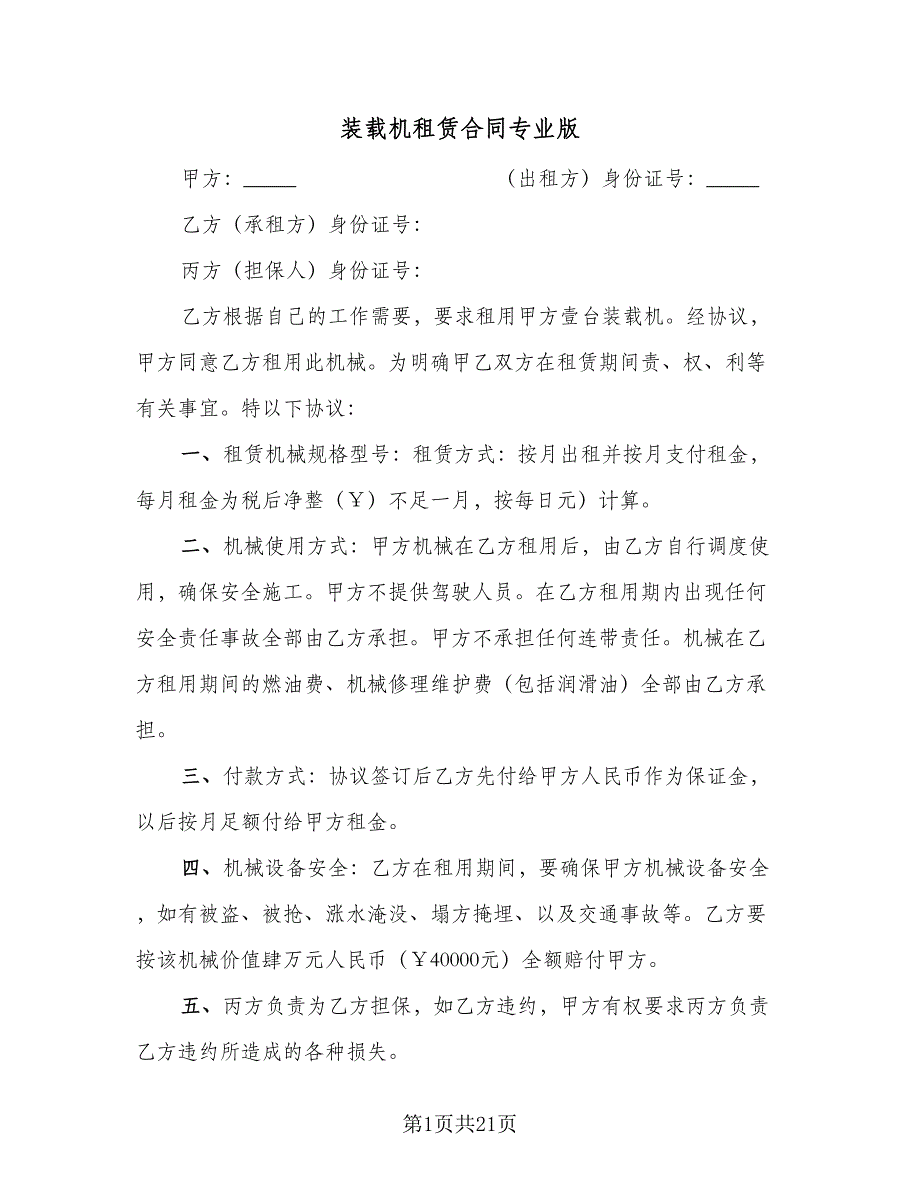 装载机租赁合同专业版
甲方：_____ （出租方）身份证号：_____
乙方（承租方）身份证号：
丙方（担保人）身份证号：
乙方根据自己的工作需要，要求租用甲方壹台装载机。经协议，
甲方同意乙方租用此机械。为明确甲乙双方在租赁期间责、权、利等
有关事宜。特以下协议：
一、租赁机械规格型号：租赁方式：按月出租并按月支付租金，
每月租金为税后净整（￥）不足一月，按每日元）计算。
二、机械使用方式：甲方机械在乙方租用后，由乙方自行调度使
用，确保安全施工。甲方不提供驾驶人员。在乙方租用期内出现任何
安全责任事故全部由乙方承担。甲方不承担任何连带责任。机械在乙
方租用期间的燃油费、机械修理维护费（包括润滑油）全部由乙方承
担。
三、付款方式：协议签订后乙方先付给甲方人民币作为保证金，
以后按月足额付给甲方租金。
四、机械设备安全：乙方在租用期间，要确保甲方机械设备安全
，如有被盗、被抢、涨水淹没、塌方掩埋、以及交通事故等。乙方要
按该机械价值肆万元人民币（￥40000元）全额赔付甲方。
五、丙方负责为乙方担保，如乙方违约，甲方有权要求丙方负责
乙方违约所造成的各种损失。
第1页共21页